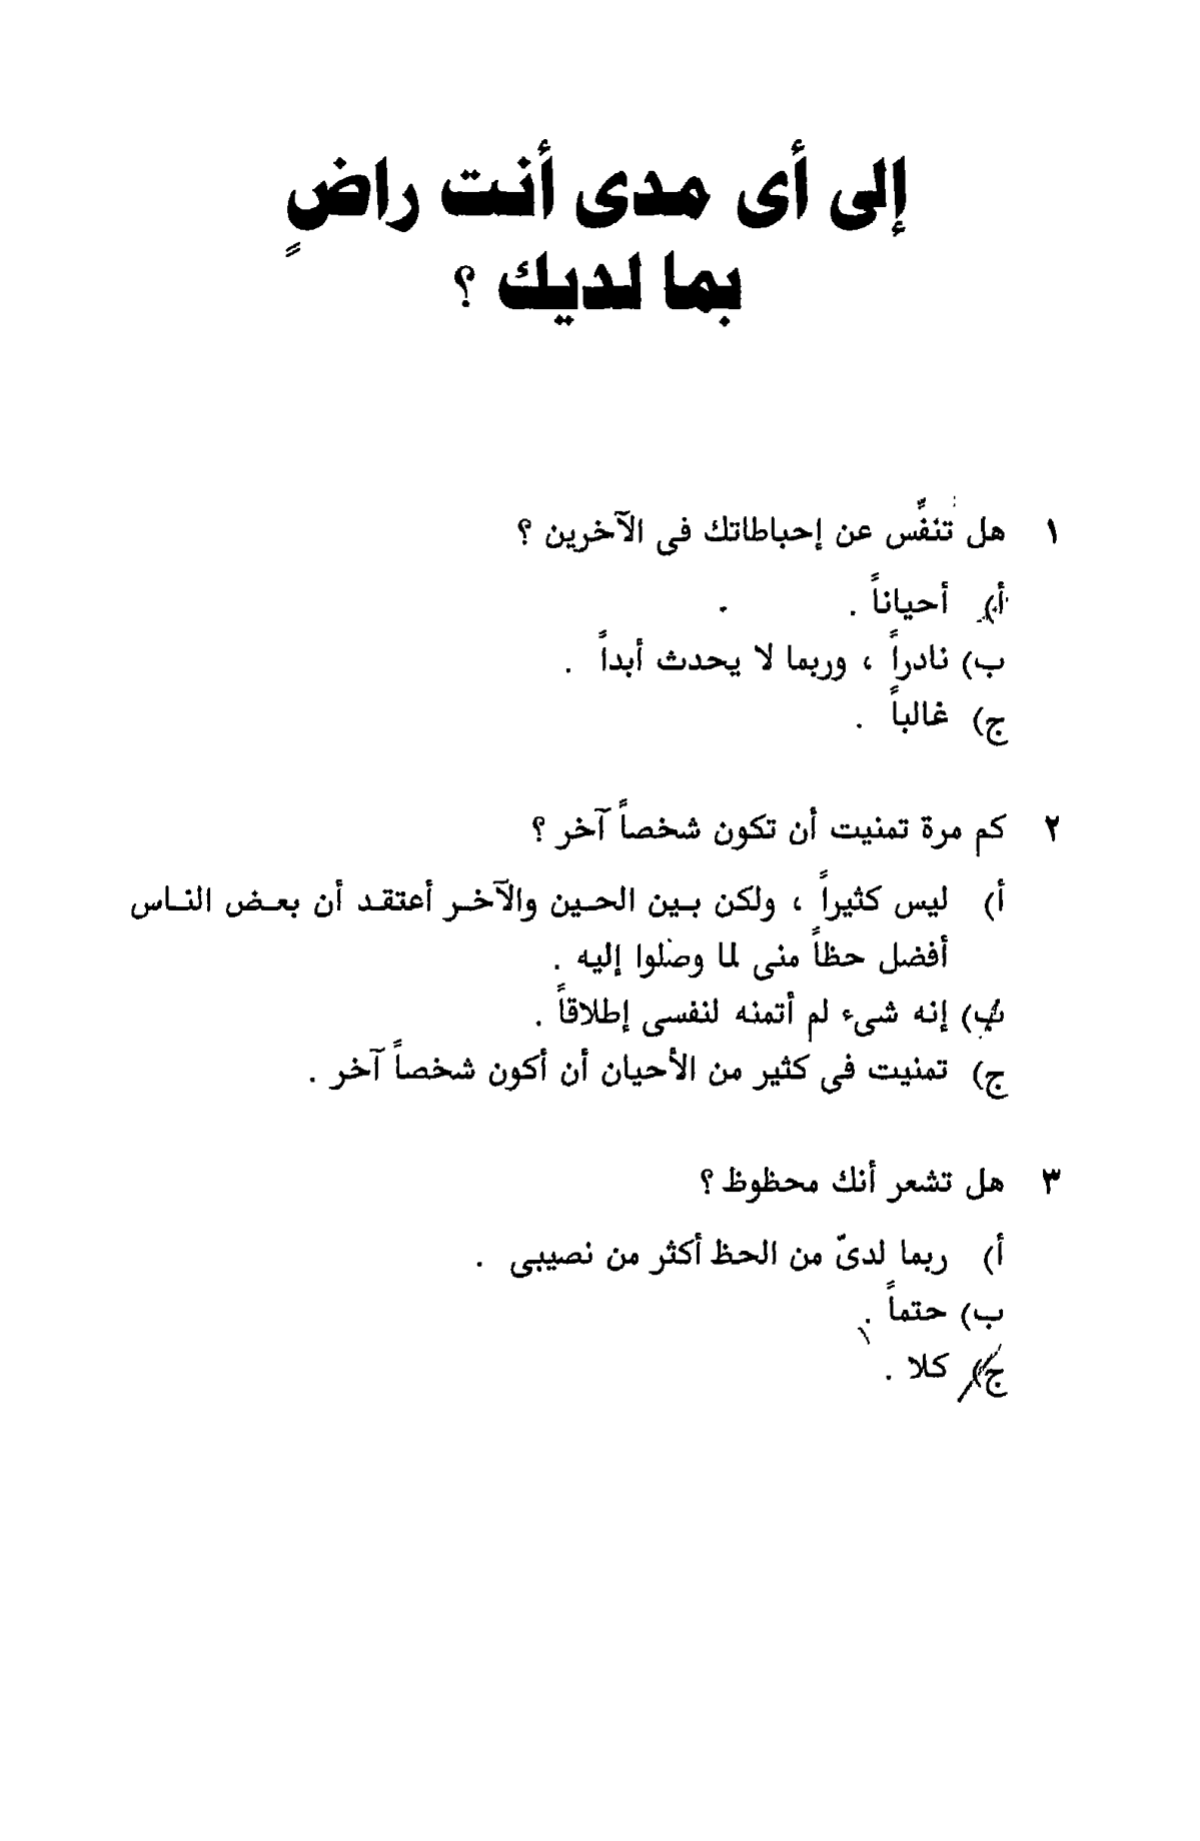 إلى أى مدى أنت راضٍ
بما لديك ؟
١ هل تنفِّس عن إحباطاتك فى الآخرين ؟
أ) أحياناً .
ب) نادراً ، وربما لا يحدث أبداً .
ج) غالباً .
٢ كم مرة تمنيت أن تكون شخصاً آخر ؟
أ) ليس كثيراً ، ولكن بـين الحـين والآخـر أعتقـد أن بعـض النـاس
أفضل حظاً منى لما وصلوا إليه .
ب) إنه شىء لم أتمنه لنفسى إطلاقاً .
ج) تمنيت فى كثير من الأحيان أن أكون شخصاً آخر .
٣ هل تشعر أنك محظوظ ؟
أ) ربما لدىّ من الحظ أكثر من نصيبى .
ب) حتماً .
ج) كلا .